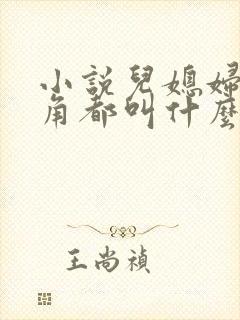 小説兒媳婦
角都叫什麼
王尚禎